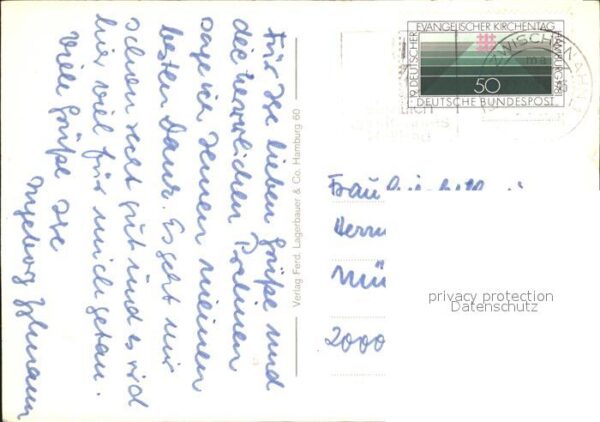 Für Ihre lieben Grüße und
die herrlichen Pralinen
sage ich Ihnen meinen
besten Dank. Es geht mir
schon recht gut und es wird
hier viel für mich getan.
Viele Grüße Ihre
Ingeborg
Verlag Ferd. Lagerbauer & Co. Hamburg 60
19. DEUTSCHER EVANGELISCHER KIRCHENTAG HAMBURG 1981
50
DEUTSCHE BUNDESPOST
ZWISCHENAHN
Frau
Herm
Mü
2000
privacy protection
Datenschutz